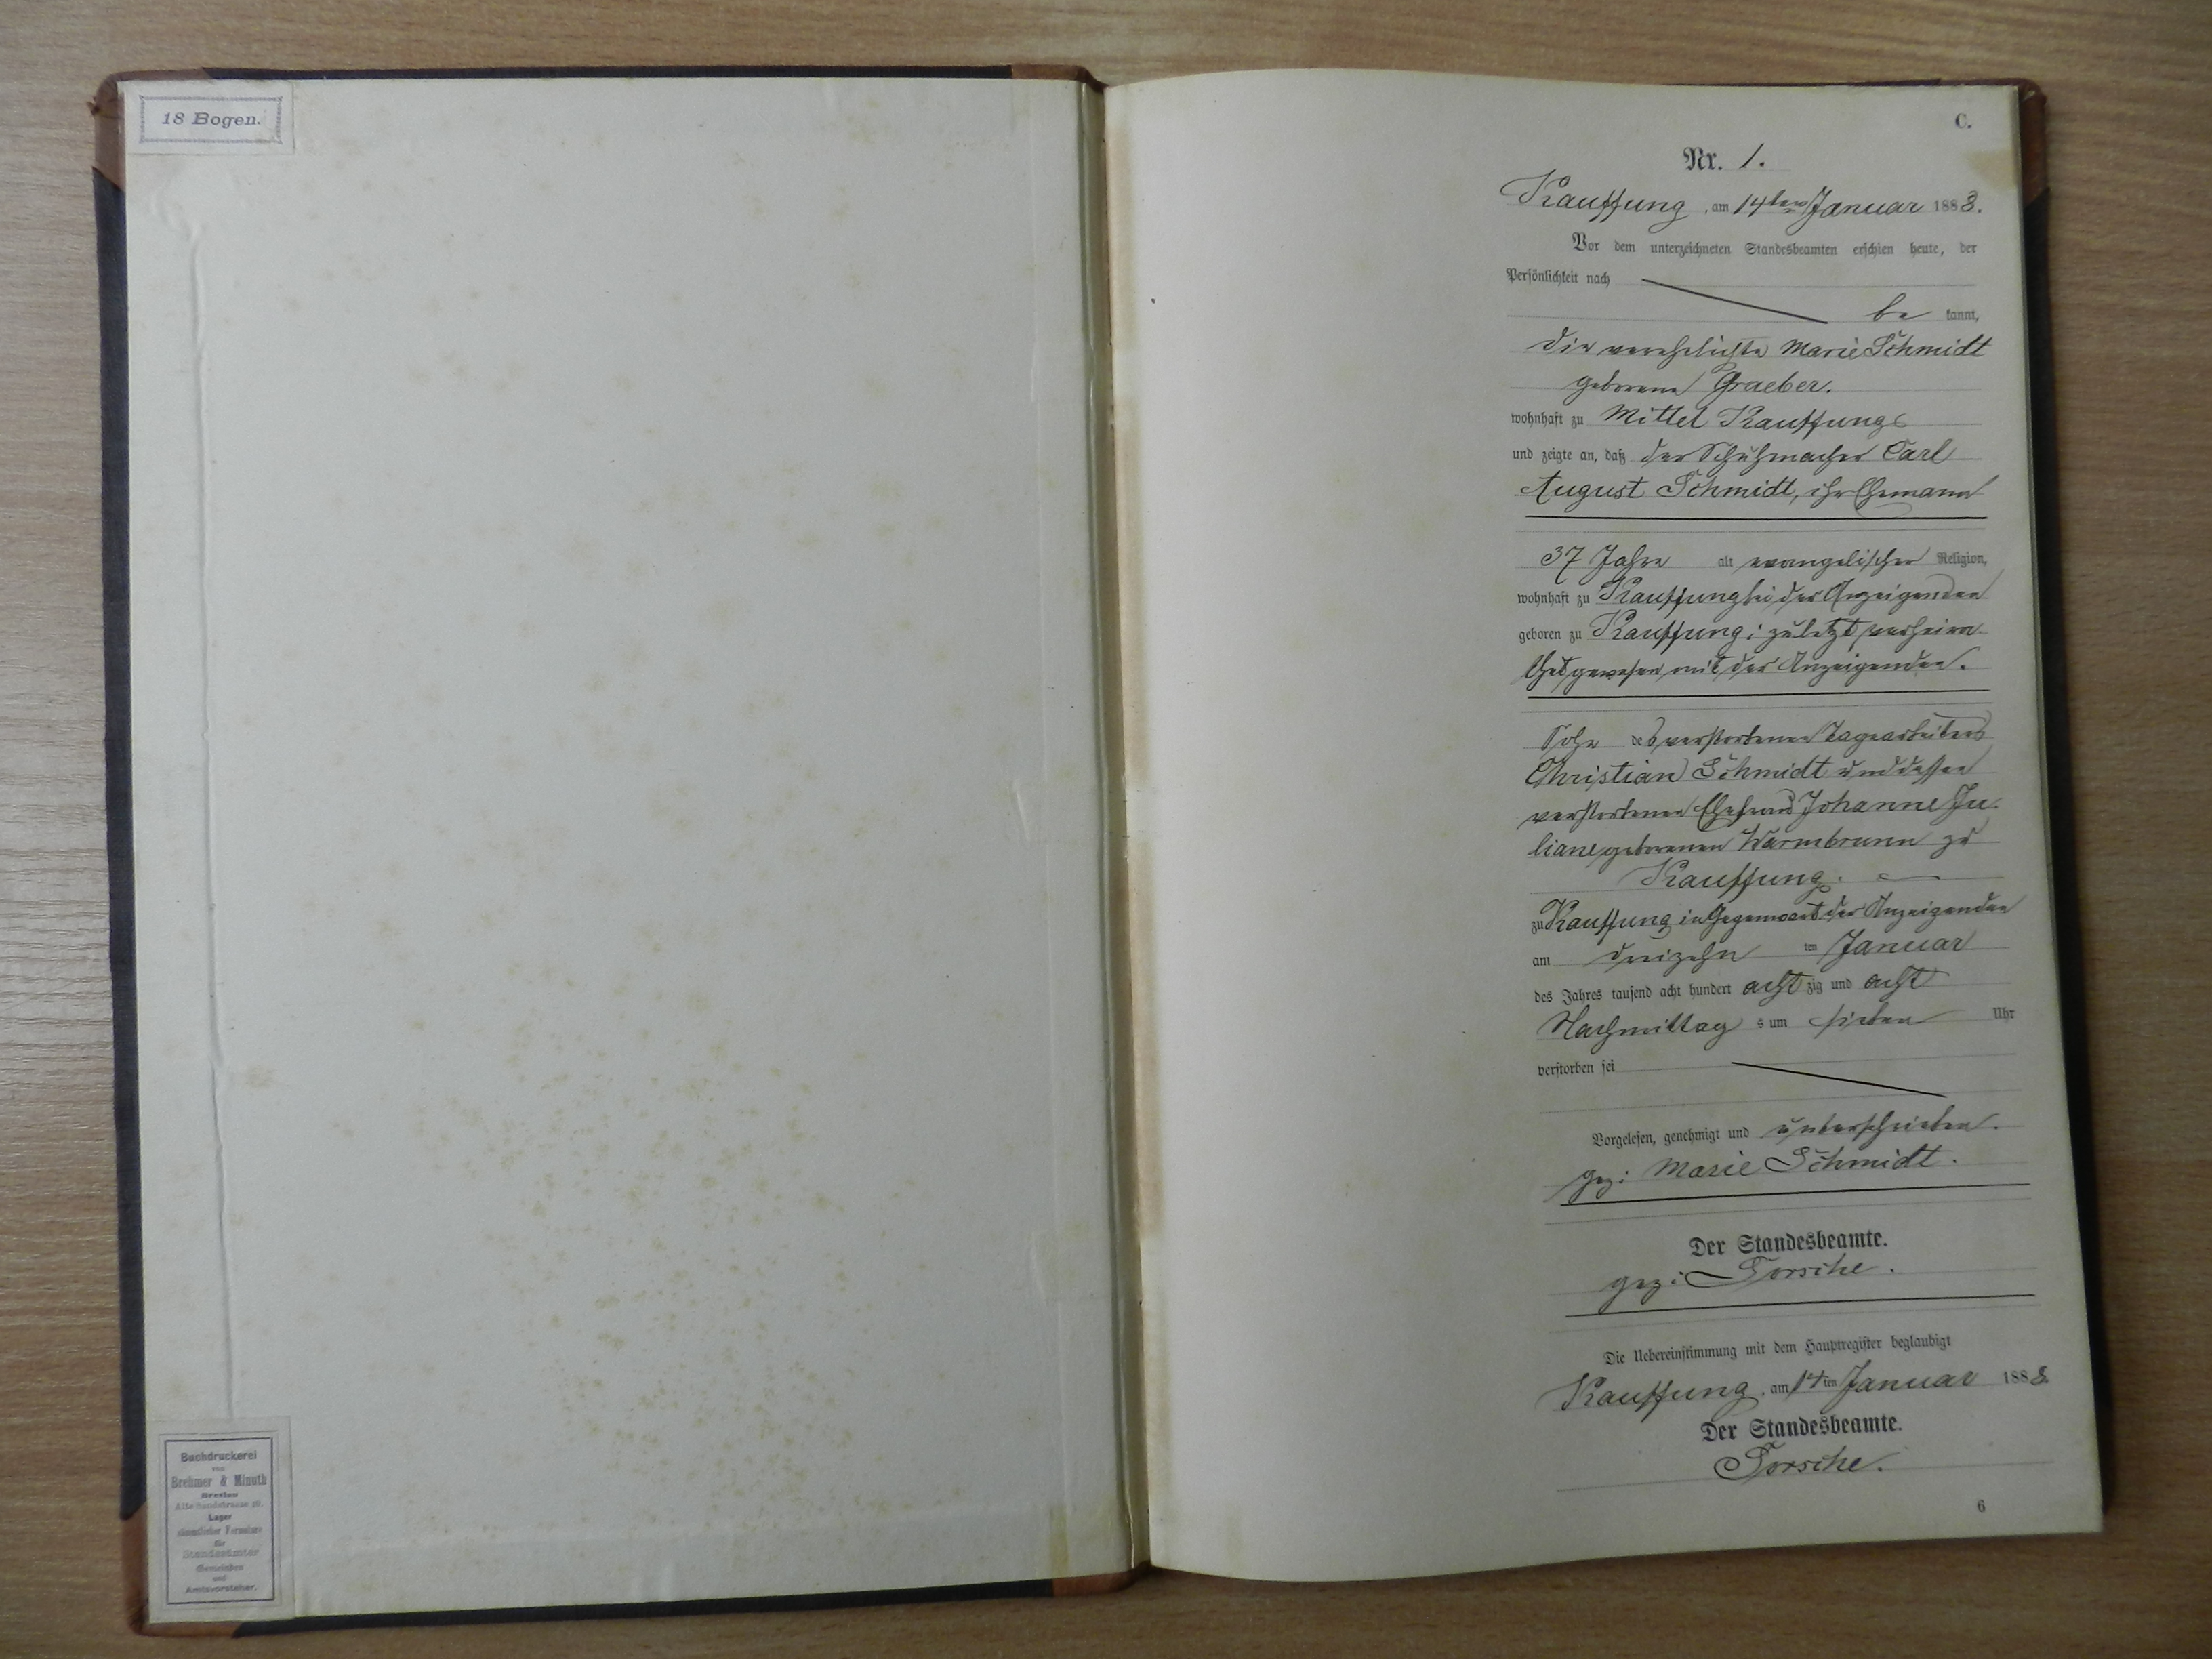 18 Bogen.
Buchdruckerei
von
Brehmer & Minuth
Breslau
Lager
sämmtlicher Formulare
für
Standesämter
Gemeinden
und
Amtsvorsteher.
C.
Nr. 1.
Kauffung, am 14ten Januar 1888.
Vor dem unterzeichneten Standesbeamten erschien heute, der
Persönlichkeit nach
be kannt,
die verehelichte Marie Schmidt
geborene Graeber.
wohnhaft zu Mittel Kauffung
und zeigte an, daß der Schuhmacher Carl
August Schmidt, ihr Ehemann
37 Jahre alt evangelischer Religion,
wohnhaft zu Kauffung bei der Anzeigenden
geboren zu Kauffung; zuletzt verheira-
thet gewesen mit der Anzeigenden.
Sohn des verstorbenen Tagearbeiters
Christian Schmidt und dessen
verstorbenen Ehefrau Johanne Ju-
liane geborenen Warmbrunn zu
Kauffung.
zu Kauffung in Gegenwart der Anzeigenden
am dreizehn ten Januar
des Jahres tausend acht hundert acht zig und acht
Nachmittag s um sieben Uhr
verstorben sei
Vorgelesen, genehmigt und unterschrieben.
gez: Marie Schmidt.
Der Standesbeamte.
gez: Torsche.
Die Uebereinstimmung mit dem Hauptregister beglaubigt
Kauffung, am 14ten Januar 1888.
Der Standesbeamte.
Torsche.
6